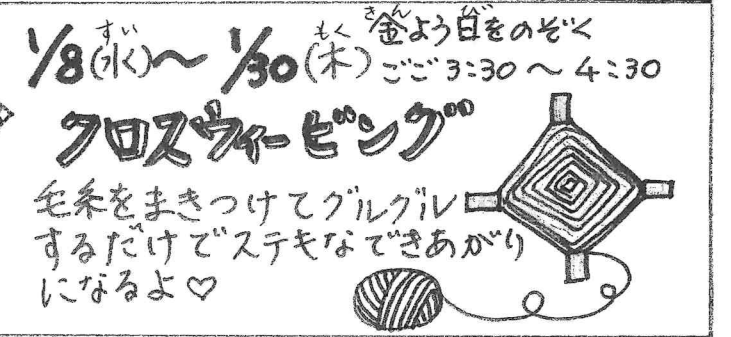 1/8(水)〜1/30(木) 金よう日をのぞく
すい もく きん び
ごご3:30〜4:30
クロスウィービング
毛糸をまきつけてグルグル
するだけでステキなできあがり
になるよ♡